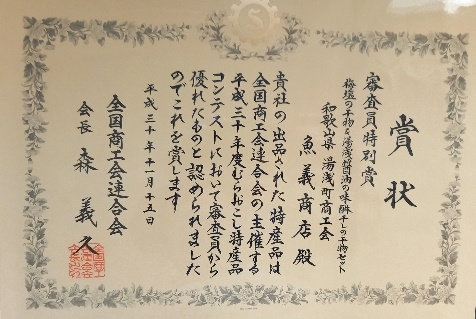 賞状
審査員特別賞
梅塩の干物&湯浅醤油の味醂干しの干物セット
和歌山県 湯浅町商工会
魚義商店殿
貴社の出品された特産品は
全国商工会連合会の主催する
平成三十年度むらおこし特産品
コンテストにおいて審査員から
優れたものと認められました
のでこれを賞します
平成三十年十一月十五日
全国商工会連合会
会長 森 義久